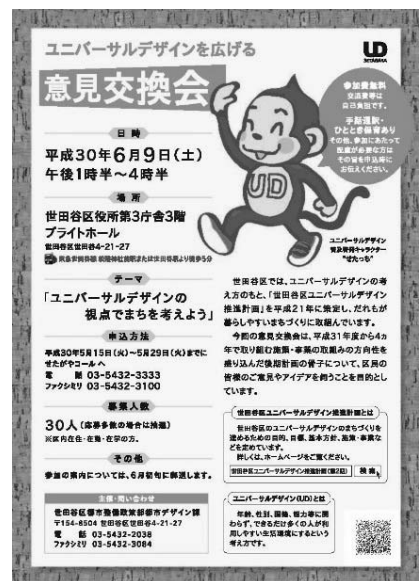 ユニバーサルデザインを広げる
意見交換会
UD
SETAGAYA
参加費無料
交通費等は
自己負担です。
手話通訳・
ひととき保育あり
その他、参加にあたって
配慮が必要な方は
その旨を申込時に
お伝えください。
日時
平成30年6月9日(土)
午後1時半～4時半
場所
世田谷区役所第3庁舎3階
ブライトホール
世田谷区世田谷4-21-27
UD
ユニバーサルデザイン
普及啓発キャラクター
“せたっち”
テーマ
「ユニバーサルデザインの
視点でまちを考えよう」
申込方法
平成30年5月15日(火)～5月29日(火)までに
せたがやコールへ
電　話　03-5432-3333
ファクシミリ　03-5432-3100
募集人数
30人(応募多数の場合は抽選)
※区内在住・在勤・在学の方。
その他
参加の案内については、6月初旬に郵送します。
主催・問い合わせ
世田谷区都市整備政策部都市デザイン課
〒154-8504 世田谷区世田谷4-21-27
電　話　03-5432-2038
ファクシミリ　03-5432-3084
世田谷区では、ユニバーサルデザインの考
え方のもと、「世田谷区ユニバーサルデザイン
推進計画」を平成21年に策定し、だれもが
暮らしやすいまちづくりに取組んでいます。
今回の意見交換会は、平成31年度から4ヵ
年で取り組む施策・事業の取組みの方向性を
盛り込んだ後期計画の骨子について、区民の
皆様のご意見やアイデアを伺うことを目的とし
ています。
世田谷区ユニバーサルデザイン推進計画とは
世田谷区のユニバーサルデザインのまちづくりを
進めるための目的、目標、基本方針、施策・事業な
どを定めています。
詳しくは、ホームページをご覧ください。
世田谷区ユニバーサルデザイン推進計画(第2期)　検索
ユニバーサルデザイン(UD)とは
年齢、性別、国籍、能力等に関
わらず、できるだけ多くの人が利
用しやすい生活環境にするという
考え方です。